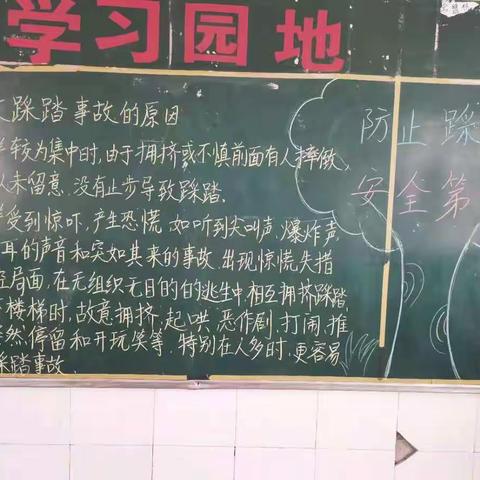 学习园地
踩踏事故的原因
较为集中时,由于拥挤或不慎前面有人摔倒,
人未留意,没有止步导致踩踏.
受到惊吓,产生恐慌,如听到尖叫声,爆炸声
耳的声音和突如其来的事故,出现惊慌失措
局面,在无组织无目的的逃生中,相互拥挤踩踏
楼梯时,故意拥挤,起哄,恶作剧,打闹,推
然停留和开玩笑等.特别在人多时,更容易
踩踏事故.
防止踩
安全第